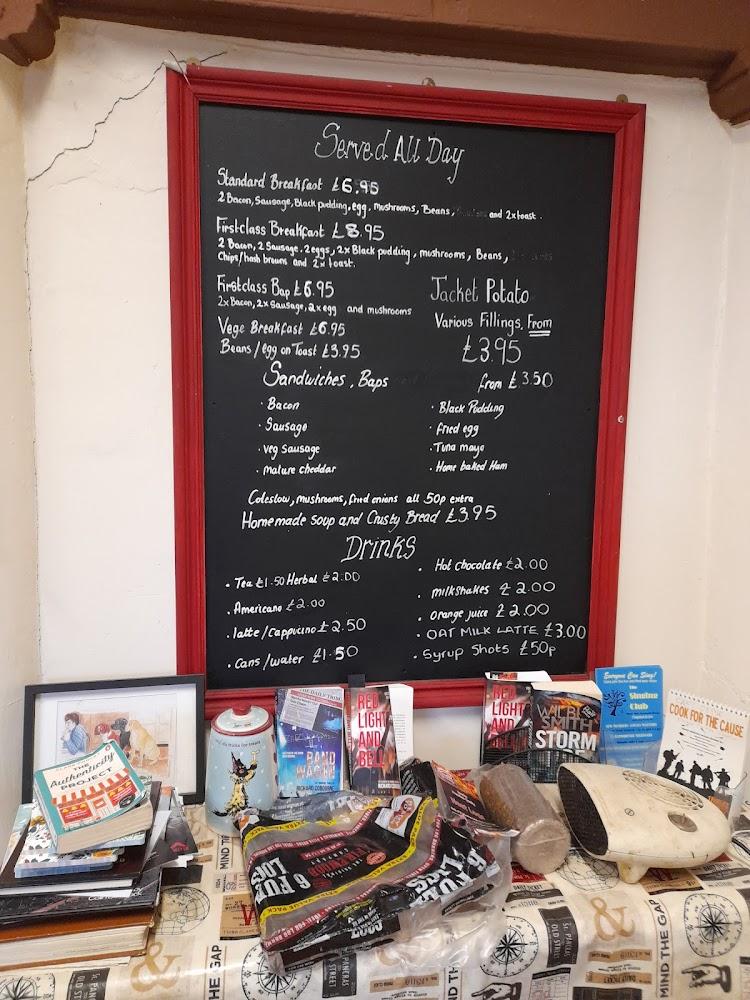 Served All Day
Standard Breakfast £6.95
2 Bacon, Sausage, Black pudding, egg, mushrooms, Beans, and 2x toast.
Firstclass Breakfast £8.95
2 Bacon, 2 Sausage, 2 eggs, 2x Black pudding, mushrooms, Beans,
Chips/hash browns and 2x toast.
Firstclass Bap £6.95
2x Bacon, 2x Sausage, 2x egg and mushrooms
Vege Breakfast £6.95
Beans/egg on Toast £3.95
Jacket Potato
Various Fillings, From
£3.95
Sandwiches, Baps
from £3.50
· Bacon
· Sausage
· veg Sausage
· mature cheddar
· Black Pudding
· fried egg
· Tuna mayo
· Home baked Ham
Coleslaw, mushrooms, fried onions all 50p extra
Homemade soup and Crusty Bread £3.95
Drinks
· Tea £1.50 Herbal £2.00
· Americano £2.00
· latte/cappucino £2.50
· Cans/water £1.50
· Hot chocolate £2.00
· milkshakes £2.00
· orange juice £2.00
· OAT MILK LATTE £3.00
· Syrup Shots £50p
THE
Authenticity
PROJECT
BAND
WAGON
RED
LIGHT
AND
BELL
RED
LIGHT
AND
BELL
WILBUR
SMITH
STORM
Everyone Can Sing!
The
Singing
Club
COOK FOR THE CAUSE
6 FUEL
LOGS
MIND THE GAP
MIND THE GAP
ST. PANCRAS
OLD STREET
ST. PANCRAS
OLD STREET
&
&